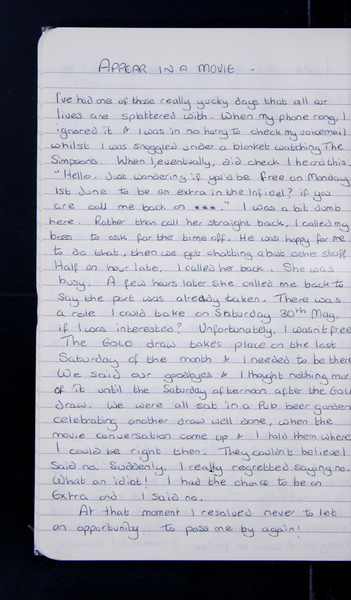 APPEAR IN A MOVIE -
I've had one of those really yucky days that all our
lives are splattered with. When my phone rang, I
ignored it & I was in no hurry to check my voicemail
whilst I was snuggled under a blanket watching The
Simpsons. When I, eventually, did check I heard this:
"Hello. Just wondering if you'd be free on Monday
1st June to be an extra in the Infidel? if you
are call me back on ***." I was a bit dumb
here. Rather than call her straight back, I called my
boss to ask for the time off. He was happy for me
to do that, then we got chatting about other stuff.
Half an hour later, I called her back. She was
busy. A few hours later she called me back to
say the part was already taken. There was
a role I could take on Saturday 30th May,
if I was interested? Unfortunately, I wasn't free
The GOLD draw takes place on the last
Saturday of the month & I needed to be there
We said our goodbyes & I thought nothing more
of it until the Saturday afternoon after the GOLD
draw. We were all sat in a Pub beer garden
celebrating another draw well done, when the
movie conversation came up & I told them where
I could be right then. They couldn't believe I
said no. Suddenly, I really regretted saying no.
What an idiot! I had the chance to be an
Extra and I said no.
At that moment I resolved never to let
an opportunity to pass me by again!